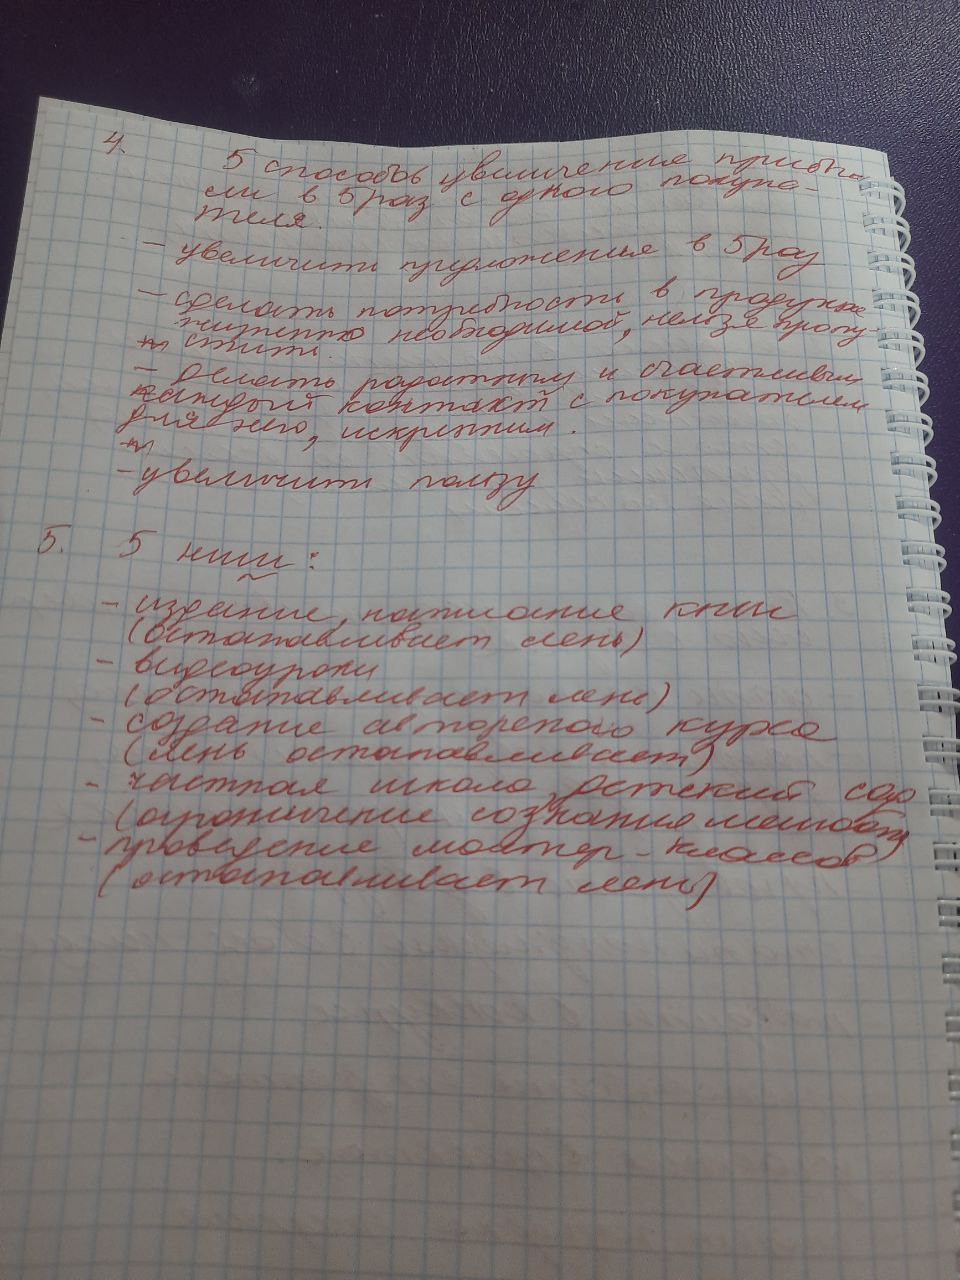 4. 5 способов увеличения прибы-
ли в 5 раз с одного покупа-
теля.
- увеличить предложения в 5 раз
- сделать потребность в продукте
жизненно необходимой, нельзя пропу-
стить.
- делать радостным и счастливым
каждый контакт с покупателем
для него, искренним.
- увеличить пользу
5. 5 ниш:
- издание, написание книг
(останавливает лень)
- видеоуроки
(останавливает лень)
- создание авторского курса
(лень останавливает)
- частная школа, детский сад
(ограничение сознания
- проведение мастер-классов
(останавливает лень)